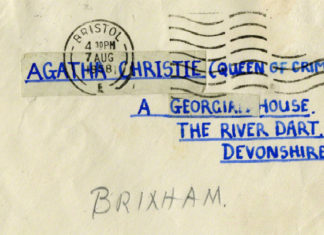 BRISTOL
4 30PM
7 AUG
E
AGATHA CHRISTIE (QUEEN OF CRIM
A GEORGIAN HOUSE.
THE RIVER DART,
DEVONSHIRE
BRIXHAM.